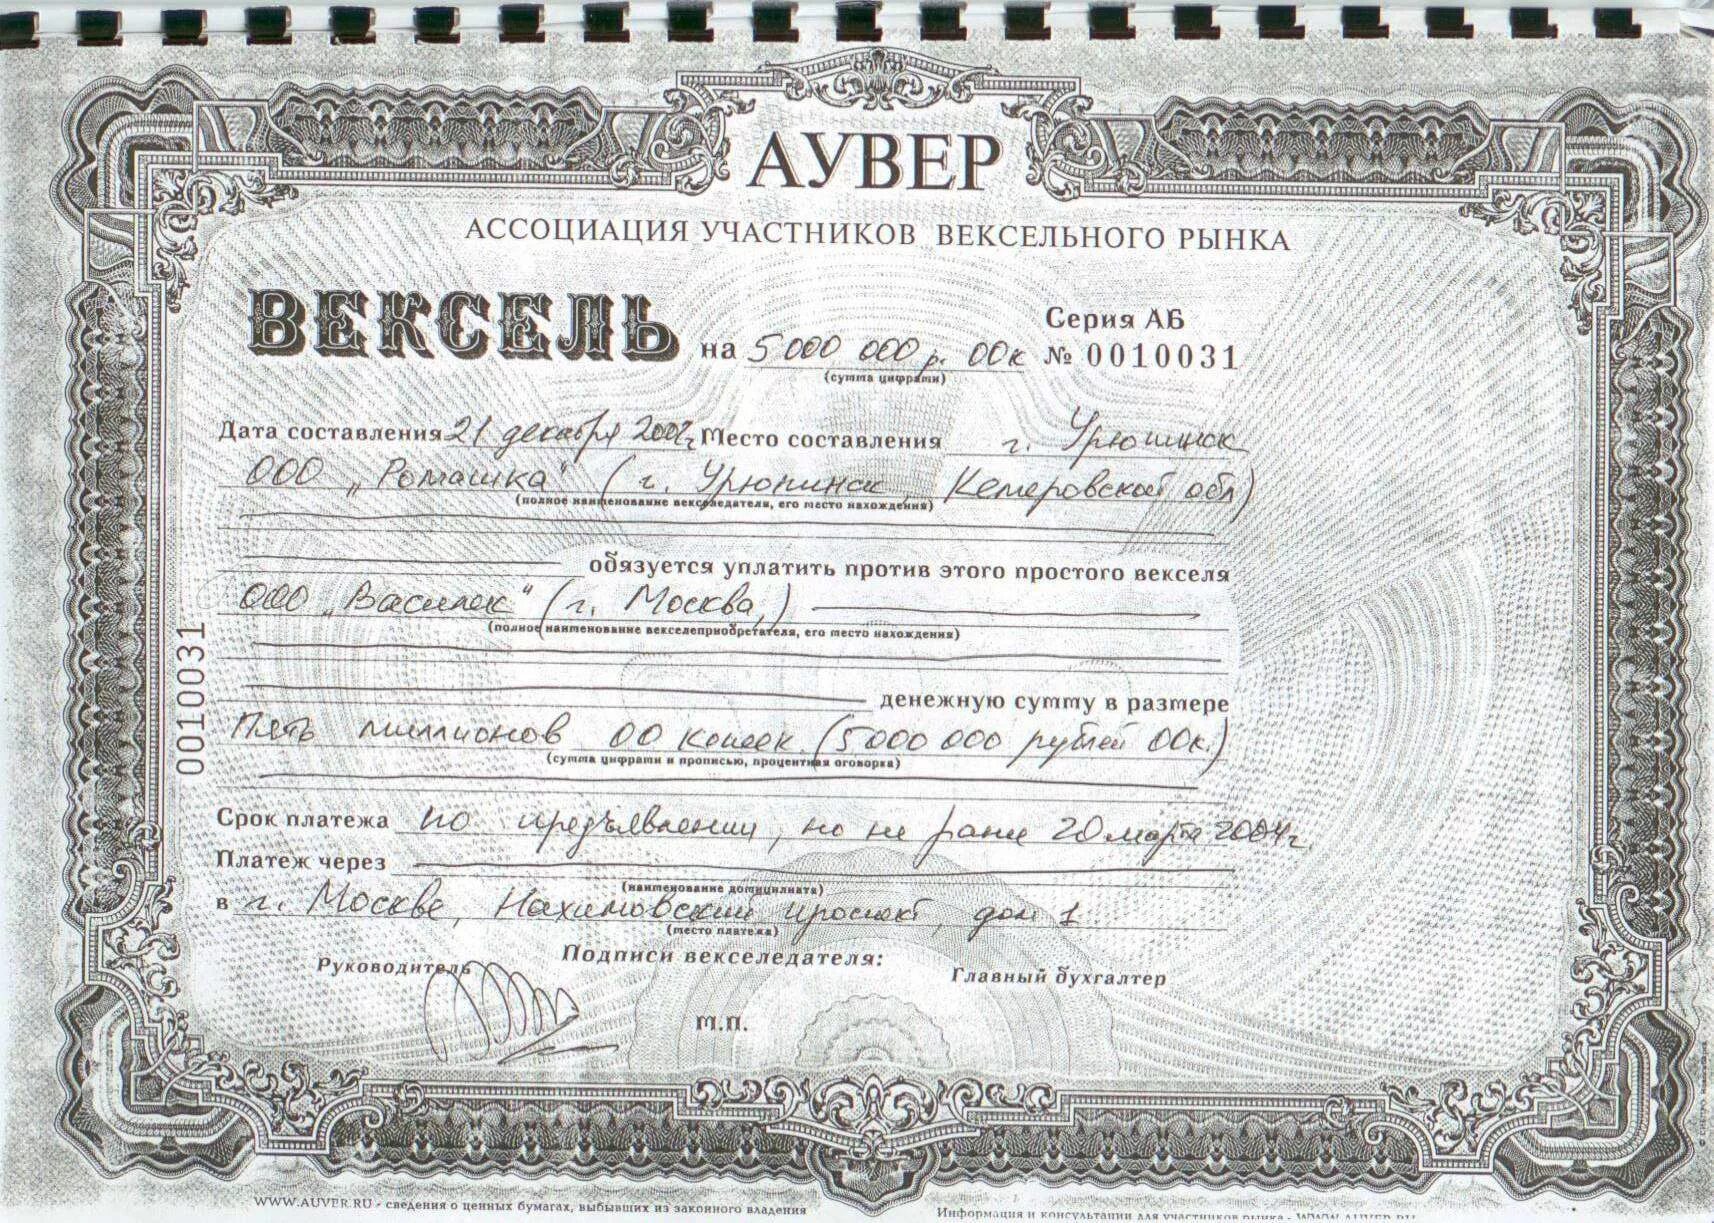 АУВЕР
АССОЦИАЦИЯ УЧАСТНИКОВ ВЕКСЕЛЬНОГО РЫНКА
ВЕКСЕЛЬ на 5 000 000 р. 00к
(сумма цифрами)
Серия АБ
№ 0010031
Дата составления 21 декабря Место составления г. Урюпинск
ООО „Ромашка" (г. Урюпинск, Кемеровской обл)
(полное наименование векселедателя, его место нахождения)
обязуется уплатить против этого простого векселя
ООО „Василек" (г. Москва,)
(полное наименование векселеприобретателя, его место нахождения)
0010031
денежную сумму в размере
Пять миллионов 00 копеек (5000 000 рублей 00к.)
(сумма цифрами и прописью, процентная оговорка)
Срок платежа по предъявлении, но не ранее 20 марта 2004г.
Платеж через
(наименование домицилиата)
в г. Москве, Нахимовский проспект, дом 1
(место платежа)
Подписи векселедателя:
Руководитель Главный бухгалтер
М.П.
WWW.AUVER.RU - сведения о ценных бумагах, выбывших из законного владения
Информация и консультации для участников рынка - WWW.AUVER.RU